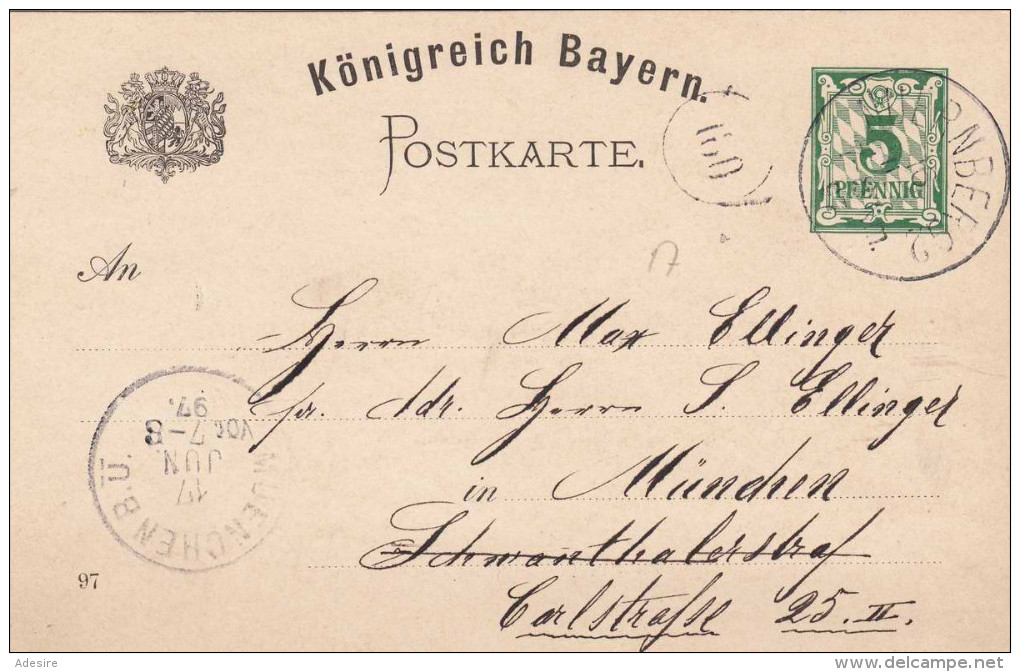 Königreich Bayern.
POSTKARTE.
5
PFENNIG
NÜRNBERG 2
160
17
An
Herrn Max Ellinger
pr. Adr. Herrn S. Ellinger
in München
Schwanthalerstraß
Carlstraße 25. II.
MUENCHEN B.Ü.
17
JUN.
VOR. 7-8
97.
97
Adesire
www.delcampe.net